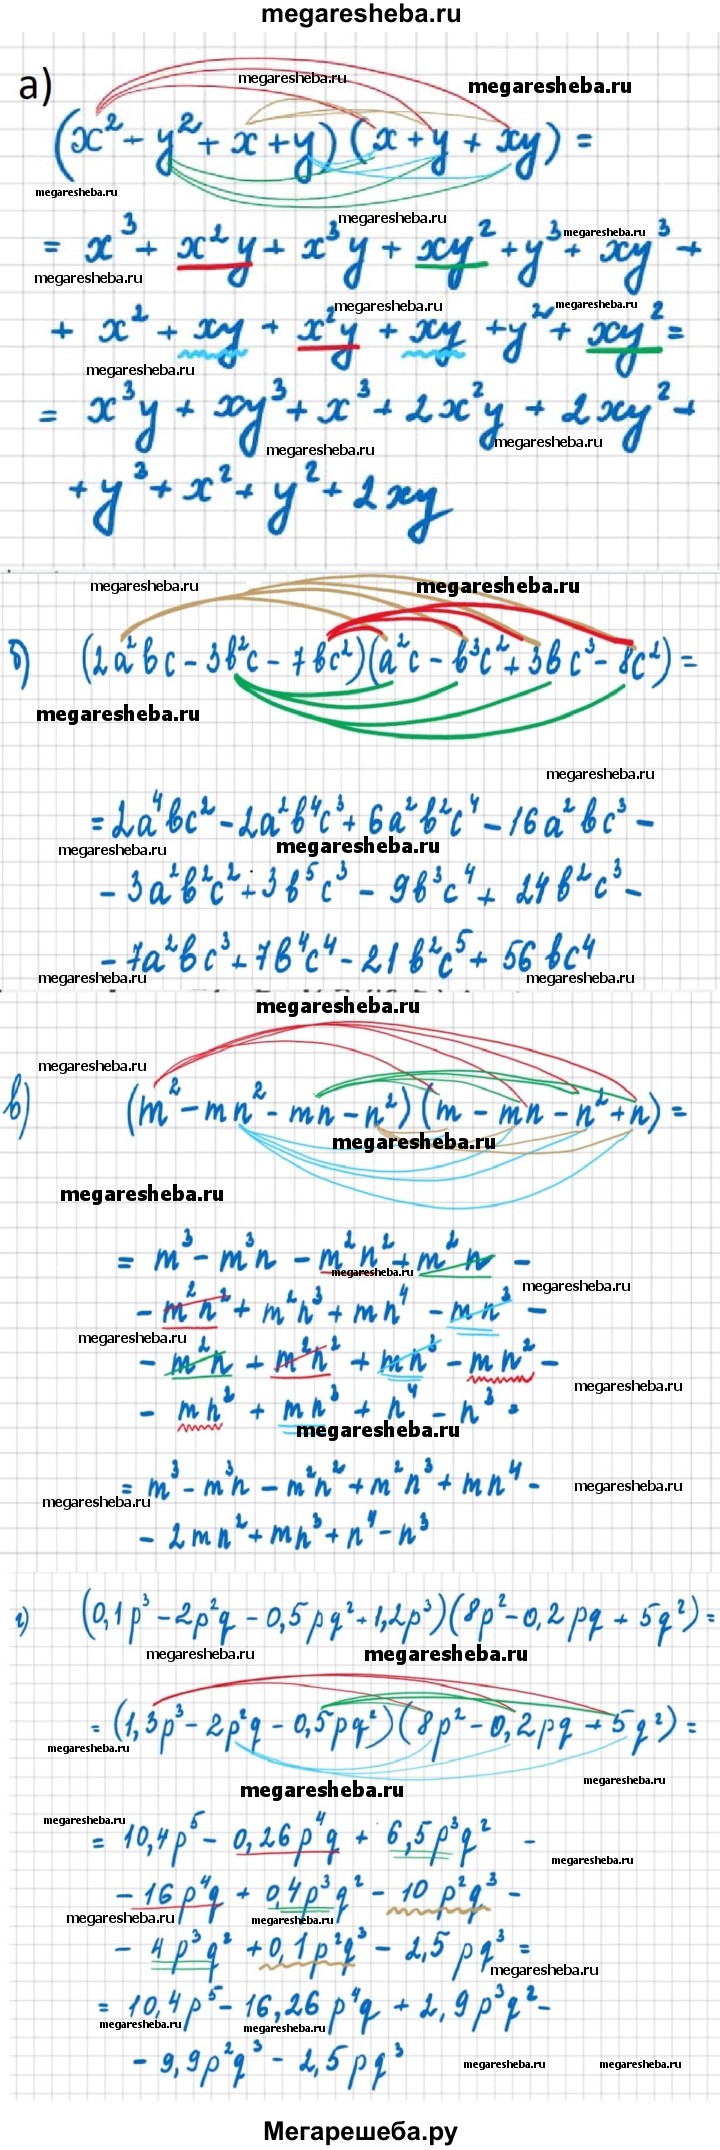 megaresheba.ru
а)
megaresheba.ru
megaresheba.ru
(x² + y² + x + y)(x + y + xy) =
megaresheba.ru
megaresheba.ru
megaresheba.ru
= x³ + x²y + x³y + xy² + y³ + xy³ +
megaresheba.ru
megaresheba.ru
megaresheba.ru
+ x² + xy + x²y + xy + y² + xy² =
megaresheba.ru
= x³y + xy³ + x³ + 2x²y + 2xy² +
megaresheba.ru
megaresheba.ru
+ y³ + x² + y² + 2xy
megaresheba.ru
megaresheba.ru
б) (2a²bc - 3b²c - 7bc²)(a²c - b³c² + 3bc³ - 8c²) =
megaresheba.ru
megaresheba.ru
= 2a⁴bc² - 2a²b⁴c³ + 6a²b²c⁴ - 16a²bc³ -
megaresheba.ru
megaresheba.ru
- 3a²b²c² + 3b⁵c³ - 9b³c⁴ + 24b²c³ -
- 7a²bc³ + 7b⁴c⁴ - 21b²c⁵ + 56bc⁴
megaresheba.ru
megaresheba.ru
megaresheba.ru
megaresheba.ru
в) (m² - mn² - mn - n²)(m - mn - n² + n) =
megaresheba.ru
megaresheba.ru
= m³ - m³n - m²n² + m²n -
megaresheba.ru
megaresheba.ru
- m²n² + m²n³ + mn⁴ - mn³ -
megaresheba.ru
- m²n + m²n² + mn³ - mn² -
megaresheba.ru
- mn² + mn³ + n⁴ - n³ =
megaresheba.ru
= m³ - m³n - m²n² + m²n³ + mn⁴ -
megaresheba.ru
megaresheba.ru
- 2mn² + mn³ + n⁴ - n³
г) (0,1p³ - 2p²q - 0,5pq² + 1,2p³)(8p² - 0,2pq + 5q²) =
megaresheba.ru
megaresheba.ru
= (1,3p³ - 2p²q - 0,5pq²)(8p² - 0,2pq + 5q²) =
megaresheba.ru
megaresheba.ru
megaresheba.ru
megaresheba.ru
= 10,4p⁵ - 0,26p⁴q + 6,5p³q² -
megaresheba.ru
- 16p⁴q + 0,4p³q² - 10p²q³ -
megaresheba.ru
megaresheba.ru
- 4p³q² + 0,1p²q³ - 2,5pq³ =
megaresheba.ru
= 10,4p⁵ - 16,26p⁴q + 2,9p³q² -
megaresheba.ru
megaresheba.ru
- 9,9p²q³ - 2,5pq³
megaresheba.ru
megaresheba.ru
Мегарешеба.ру